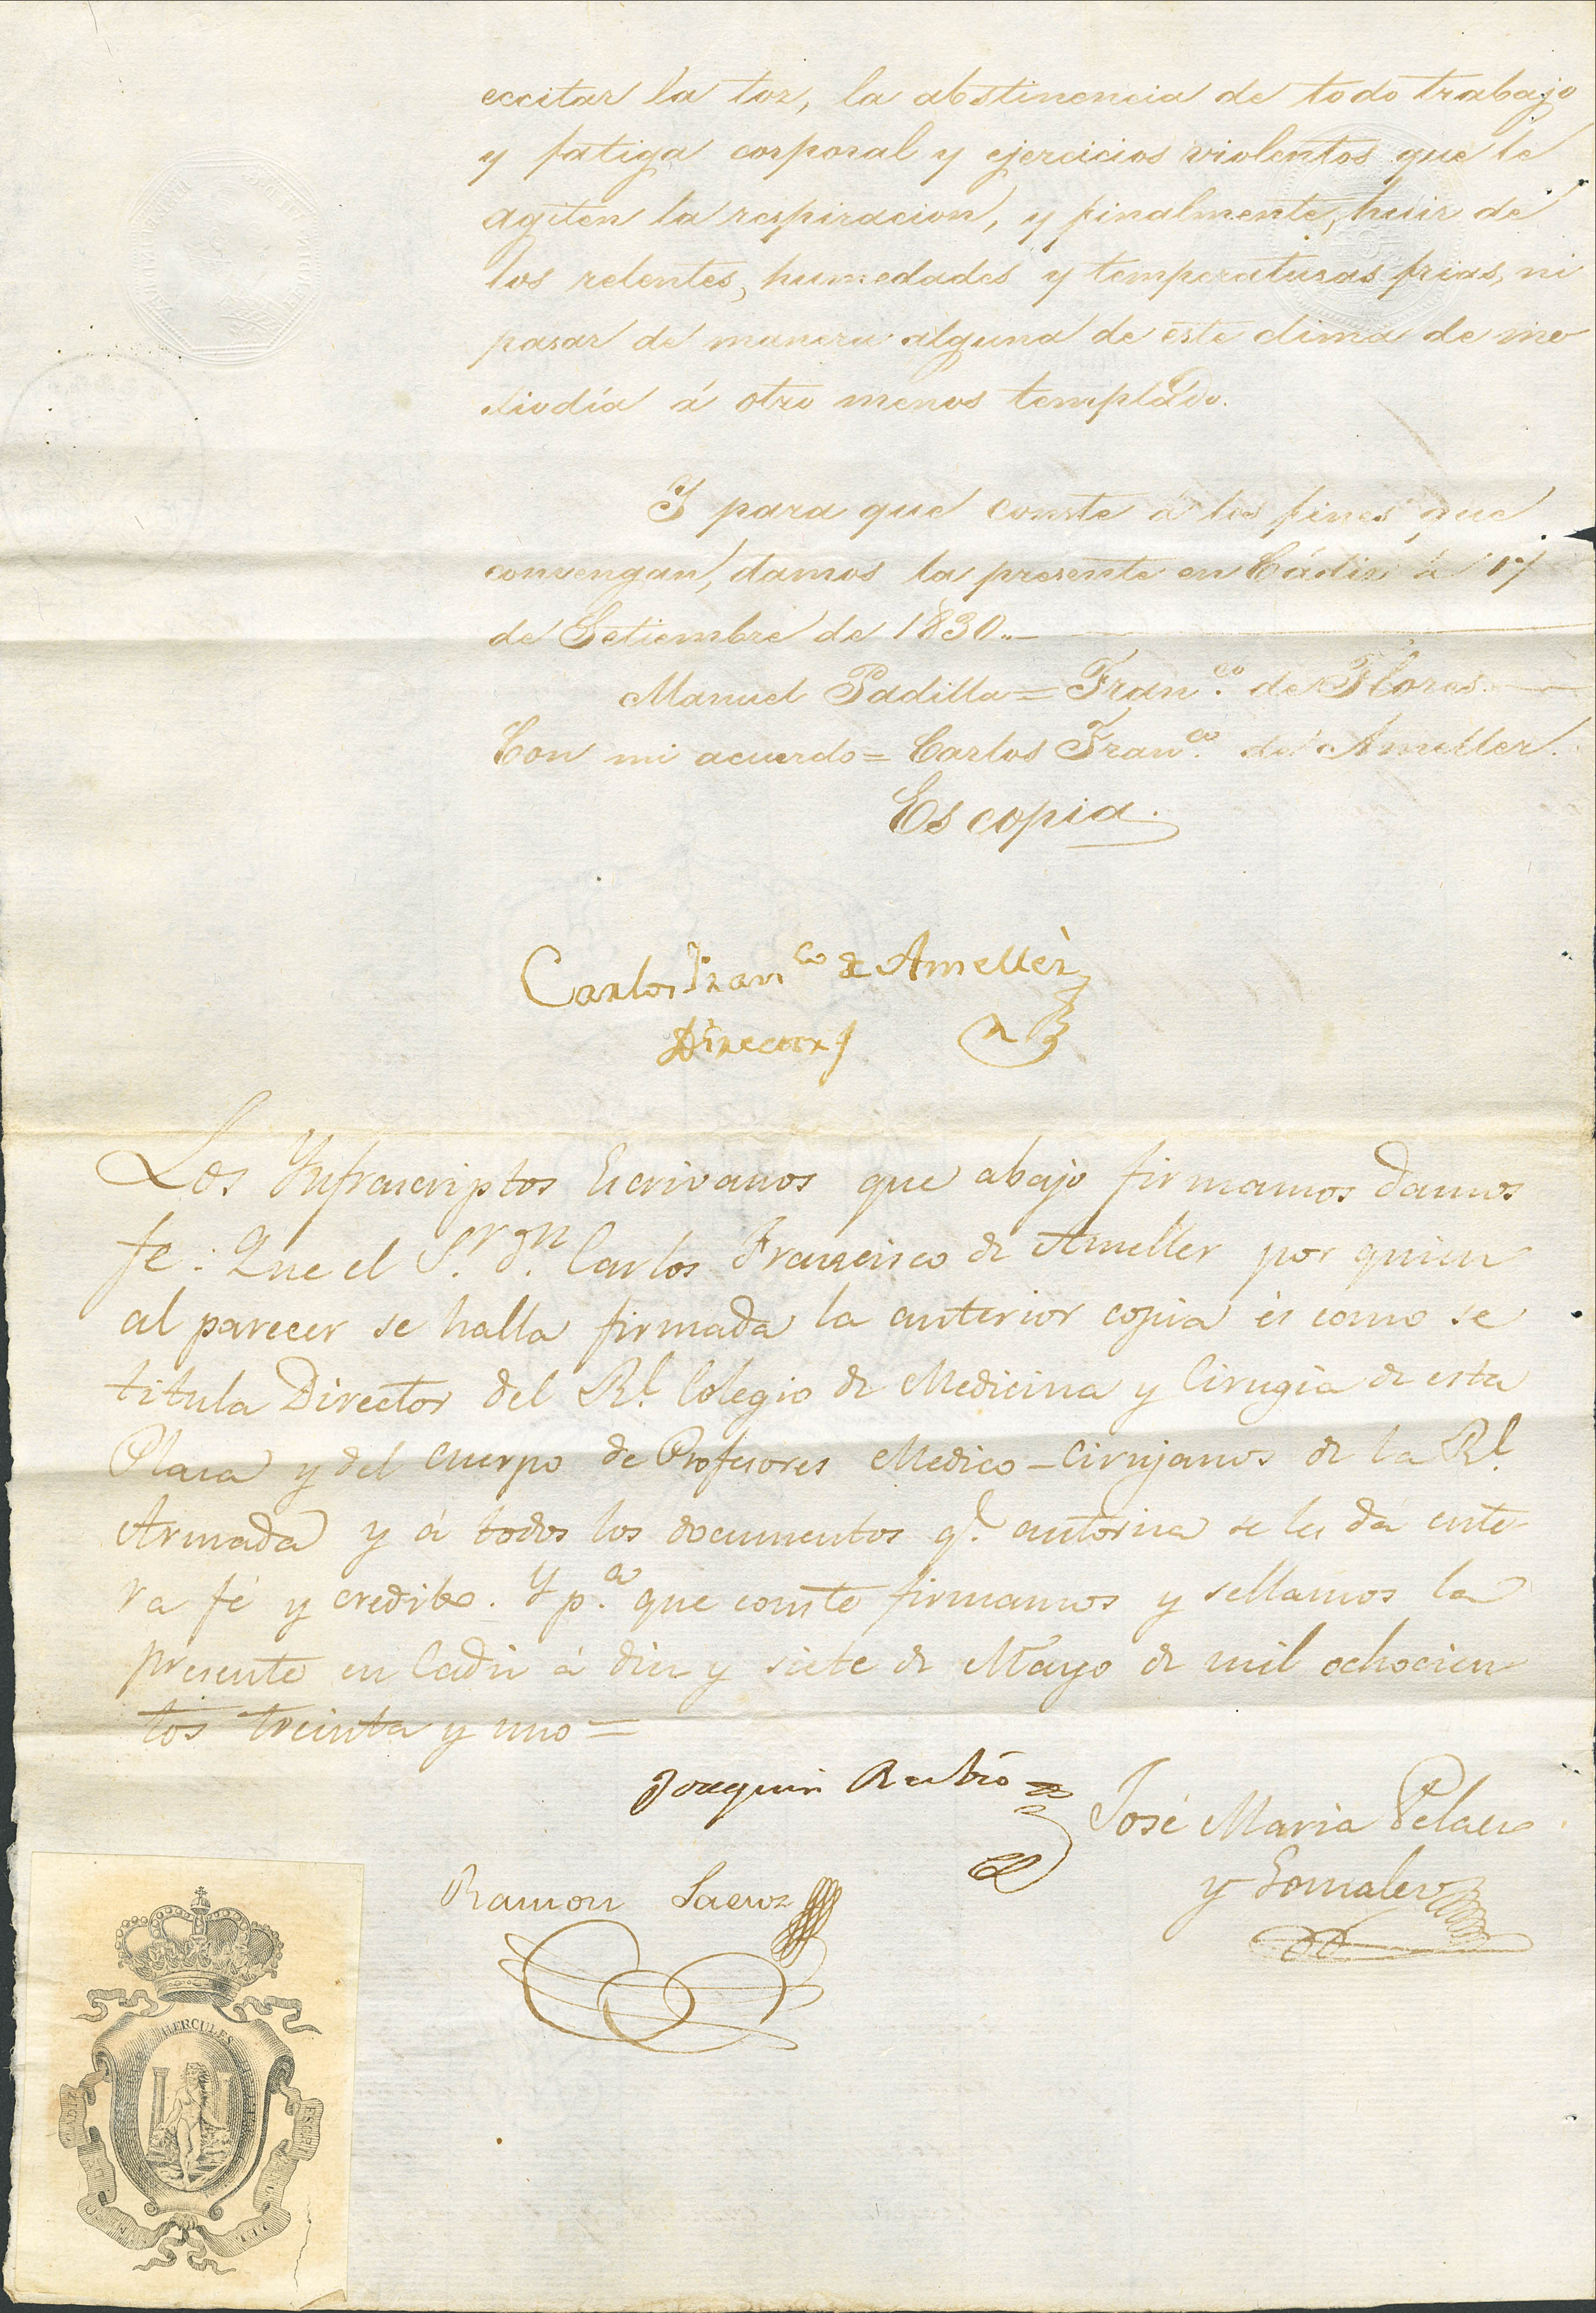 eccitar la toz, la abstinencia de todo trabajo
y fatiga corporal y ejercicios violentos que le
agiten la respiracion, y finalmente, huir de
los relentes, humedades y temperaturas frias, ni
pasar de manera alguna de este clima de me
diodía á otro menos templado.
Y para que conste á los fines que
convengan, damos la presente en Cádiz á 17
de Setiembre de 1830..—
Manuel Padilla = Fran.co de Flores.
Con mi acuerdo = Carlos Fran.co de Ameller.
Es copia.
Carlos Fran.co de Amellèr
Director
Los Ynfrascriptos Escrivanos que abajo firmamos damos
fe: Que el S.r D.n Carlos Francisco de Ameller por quien
al parecer se halla firmada la anterior copia és como se
titula Director del R.l Colegio de Medicina y Cirugia de esta
Plaza y del Cuerpo de Profesores Medico-Cirujanos de la R.l
Armada y á todos los documentos q.e autoriza se les dá ente
ra fé y credito. Y p.a que conste firmamos y sellamos la
presente en Cadiz á diez y siete de Mayo de mil ochocien
tos treinta y uno =
Joaquin Rubio
José Maria Pelaez
y Gonzalez
Ramon Saenz
HERCULES
CADIZ